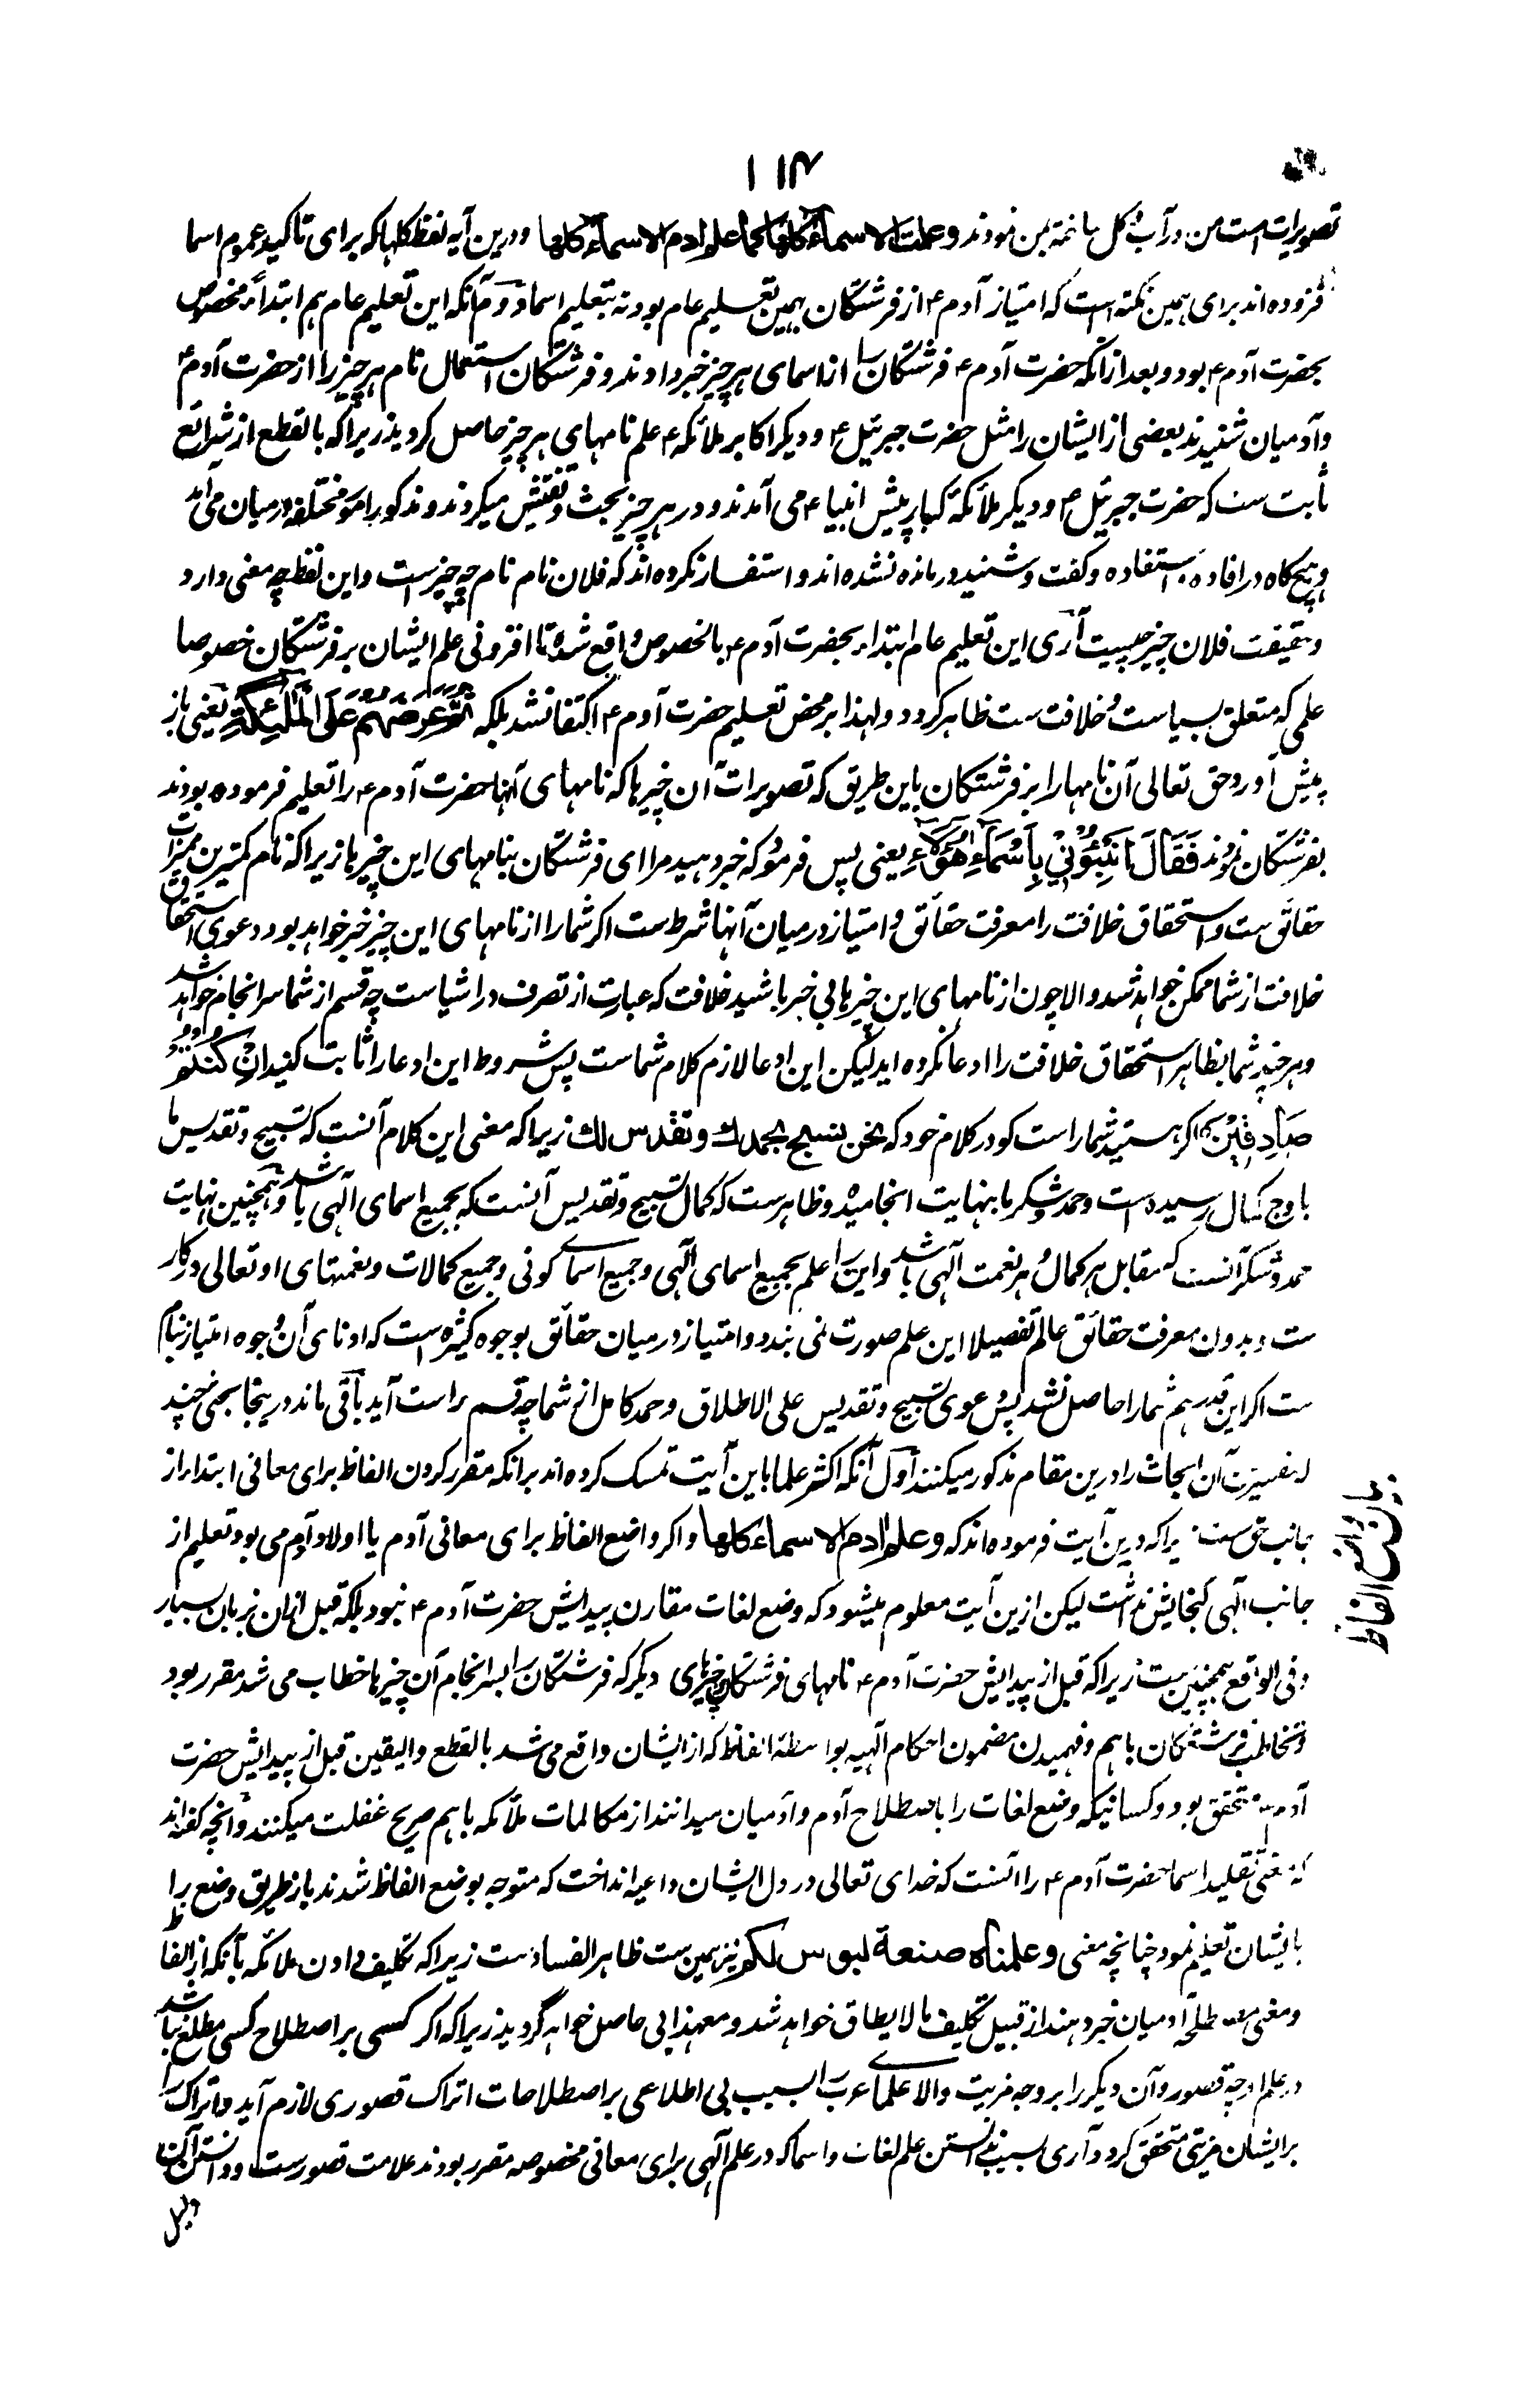 ۱۱۴
تصویرات است من در آب و گل ساخته بمن نمودند و علمت الاسماء کلها کما علم ادم الاسماء کلها و درین آیه لفظ کلها که برای تاکید عموم اسما
فزوده اند برای همین نکته است که امتیاز آدم ۴ از فرشتگان بهمین تعلیم عام بود نه بتعلیم اسما دوم آنکه این تعلیم عام هم ابتداءً مخصوص
بحضرت آدم ۴ بود و بعد از انکه حضرت آدم ۴ فرشتگان را از اسمای هر چیز خبر دادند و فرشتگان استعمال نام هر چیز را از حضرت آدم ۴
و آدمیان شنیدند بعضی از ایشان را مثل حضرت جبرئیل ۴ و دیگر اکابر ملائکه ۴ علم نامهای هر چیز حاصل گردید زیرا که بالقطع از شرائع
ثابت ست که حضرت جبرئیل ۴ و دیگر ملائکهٔ کبار پیش انبیا ۴ می آمدند و در هر چیز بحث و تفتیش میکردند و مذکور امور مختلفه درمیان می آمد
و هیچ گاه در افاده و استفاده و گفت و شنید در مانده نشده اند و استفسار نکرده اند که فلان نام نام چه چیز است و این لفظ چه معنی دارد
و حقیقت فلان چیز چیست آری این تعلیم عام ابتداء بحضرت آدم ۴ بالخصوص واقع شد تا افزونی علم ایشان بر فرشتگان خصوصا
علمی که متعلق بسیاست و خلافت ست ظاهر گردد و لهذا بر محض تعلیم حضرت آدم ۴ اکتفا نشد بلکه ثُمَّ عَرَضَهُمْ عَلَى الْمَلٰئِكَةِ یعنی باز
پیش آورد حق تعالی آن نامها را بر فرشتگان باین طریق که تصویرات آن چیزها که نامهای آنها حضرت آدم ۴ را تعلیم فرموده بودند
بفرشتگان نمودند فَقَالَ اَنْبِئُوْنِيْ بِاَسْمَآءِ هٰؤُلَآءِ یعنی پس فرمود که خبر دهید مرا ای فرشتگان بنامهای این چیزها زیرا که نام کمترین ممیزات
حقائق ست و استحقاق خلافت را معرفت حقائق و امتیاز درمیان آنها شرط ست اگر شما را از نامهای این چیز خبر خواهد بود دعوی استحقاق
خلافت از شما ممکن خواهد شد و الا چون از نامهای این چیزها بی خبر باشید خلافت که عبارت از تصرف در اشیاست چه قسم از شما سرانجام خواهد شد
و هر چند شما بظاهر استحقاق خلافت را ادعا نکرده اید لیکن این ادعا لازم کلام شماست پس شروط این ادعا را ثابت کنید اِنْ كُنْتُمْ
صَادِقِيْنَ اگر هستید شما راست گو در کلام خود که نحن نسبح بحمدك ونقدس لك زیرا که معنی این کلام آنست که تسبیح و تقدیس ما
باوج کمال رسیده است و حمد و شکر ما بنهایت انجامیده و ظاهرست که کمال تسبیح و تقدیس آنست که بجمیع اسمای الٓهی باشد و همچنین نهایت
حمد و شکر آنست که مقابل هر کمال و هر نعمت الٓهی باشد و این را علم بجمیع اسمای الٓهی و جمیع اسمای کونی و جمیع کمالات و نعمتهای او تعالی درکار
ست و بدون معرفت حقائق عالم تفصیلا این علم صورت نمی بندد و امتیاز درمیان حقائق بوجوه کثیره است که ادنای آن وجوه امتیاز بنام
ست اگر این قدر هم شما را حاصل نشد پس دعوی تسبیح و تقدیس علی الاطلاق و حمد کامل از شما چه قسم راست آید باقی ماند درینجا بحثی چند
که مفسرین آن ابحاث را درین مقام مذکور میکنند اول آنکه اکثر علما باین آیت تمسک کرده اند بر انکه مقرر کردن الفاظ برای معانی ابتداء از
جانب حق ست زیرا که درین آیت فرموده اند که و علم ادم الاسماء کلها و اگر واضع الفاظ برای معانی آدم یا اولاد آدم می بود تعلیم از
جانب الٓهی گنجایش نداشت لیکن ازین آیت معلوم میشود که وضع لغات مقارن پیدایش حضرت آدم ۴ نبود بلکه قبل ازان بزمان بسیار
و فی الواقع همچنین ست زیرا که قبل از پیدایش حضرت آدم ۴ نامهای فرشتگان و چیزهای دیگر که فرشتگان را بسرانجام آن چیزها خطاب می شد مقرر بود
و تخاطب فرشتگان باهم و فهمیدن مضمون احکام الٓهیه بواسطهٔ الفاظ که از ایشان واقع می شد بالقطع و الیقین قبل از پیدایش حضرت
آدم ۴ متحقق بود و کسانیکه وضع لغات را باصطلاح آدم و آدمیان میدانند از مکالمات ملائکه باهم صریح غفلت میکنند و آنچه گفته اند
که معنی تعلیم اسما حضرت آدم ۴ را آنست که خدای تعالی در دل ایشان داعیه انداخت که متوجه بوضع الفاظ شدند باز طریق وضع را
بایشان تعلیم نمود چنانچه معنی و علمناه صنعة لبوس لکم نیز همین ست ظاهر الفسادست زیرا که تکلیف دادن ملائکه بآنکه از الفاظ
و معنی مصطلحهٔ آدمیان خبر دهند از قبیل تکلیف ما لا یطاق خواهد شد و معهذا بی حاصل خواهد گردید زیرا که اگر کسی بر اصطلاح کسی مطلع نباشد
در علم او چه قصور و آن دیگر را بر وجه مزیت و الا علمای عرب را بسبب بی اطلاعی بر اصطلاحات اتراک قصوری لازم آید و اتراک را
بر ایشان مزیتی متحقق گردد آری بسبب ندانستن علم لغات و اسما که در علم الٓهی برای معانی مخصوصه مقرر بودند علامت قصورست و دانستن آن
دلیل
بیان واضع الفاظ